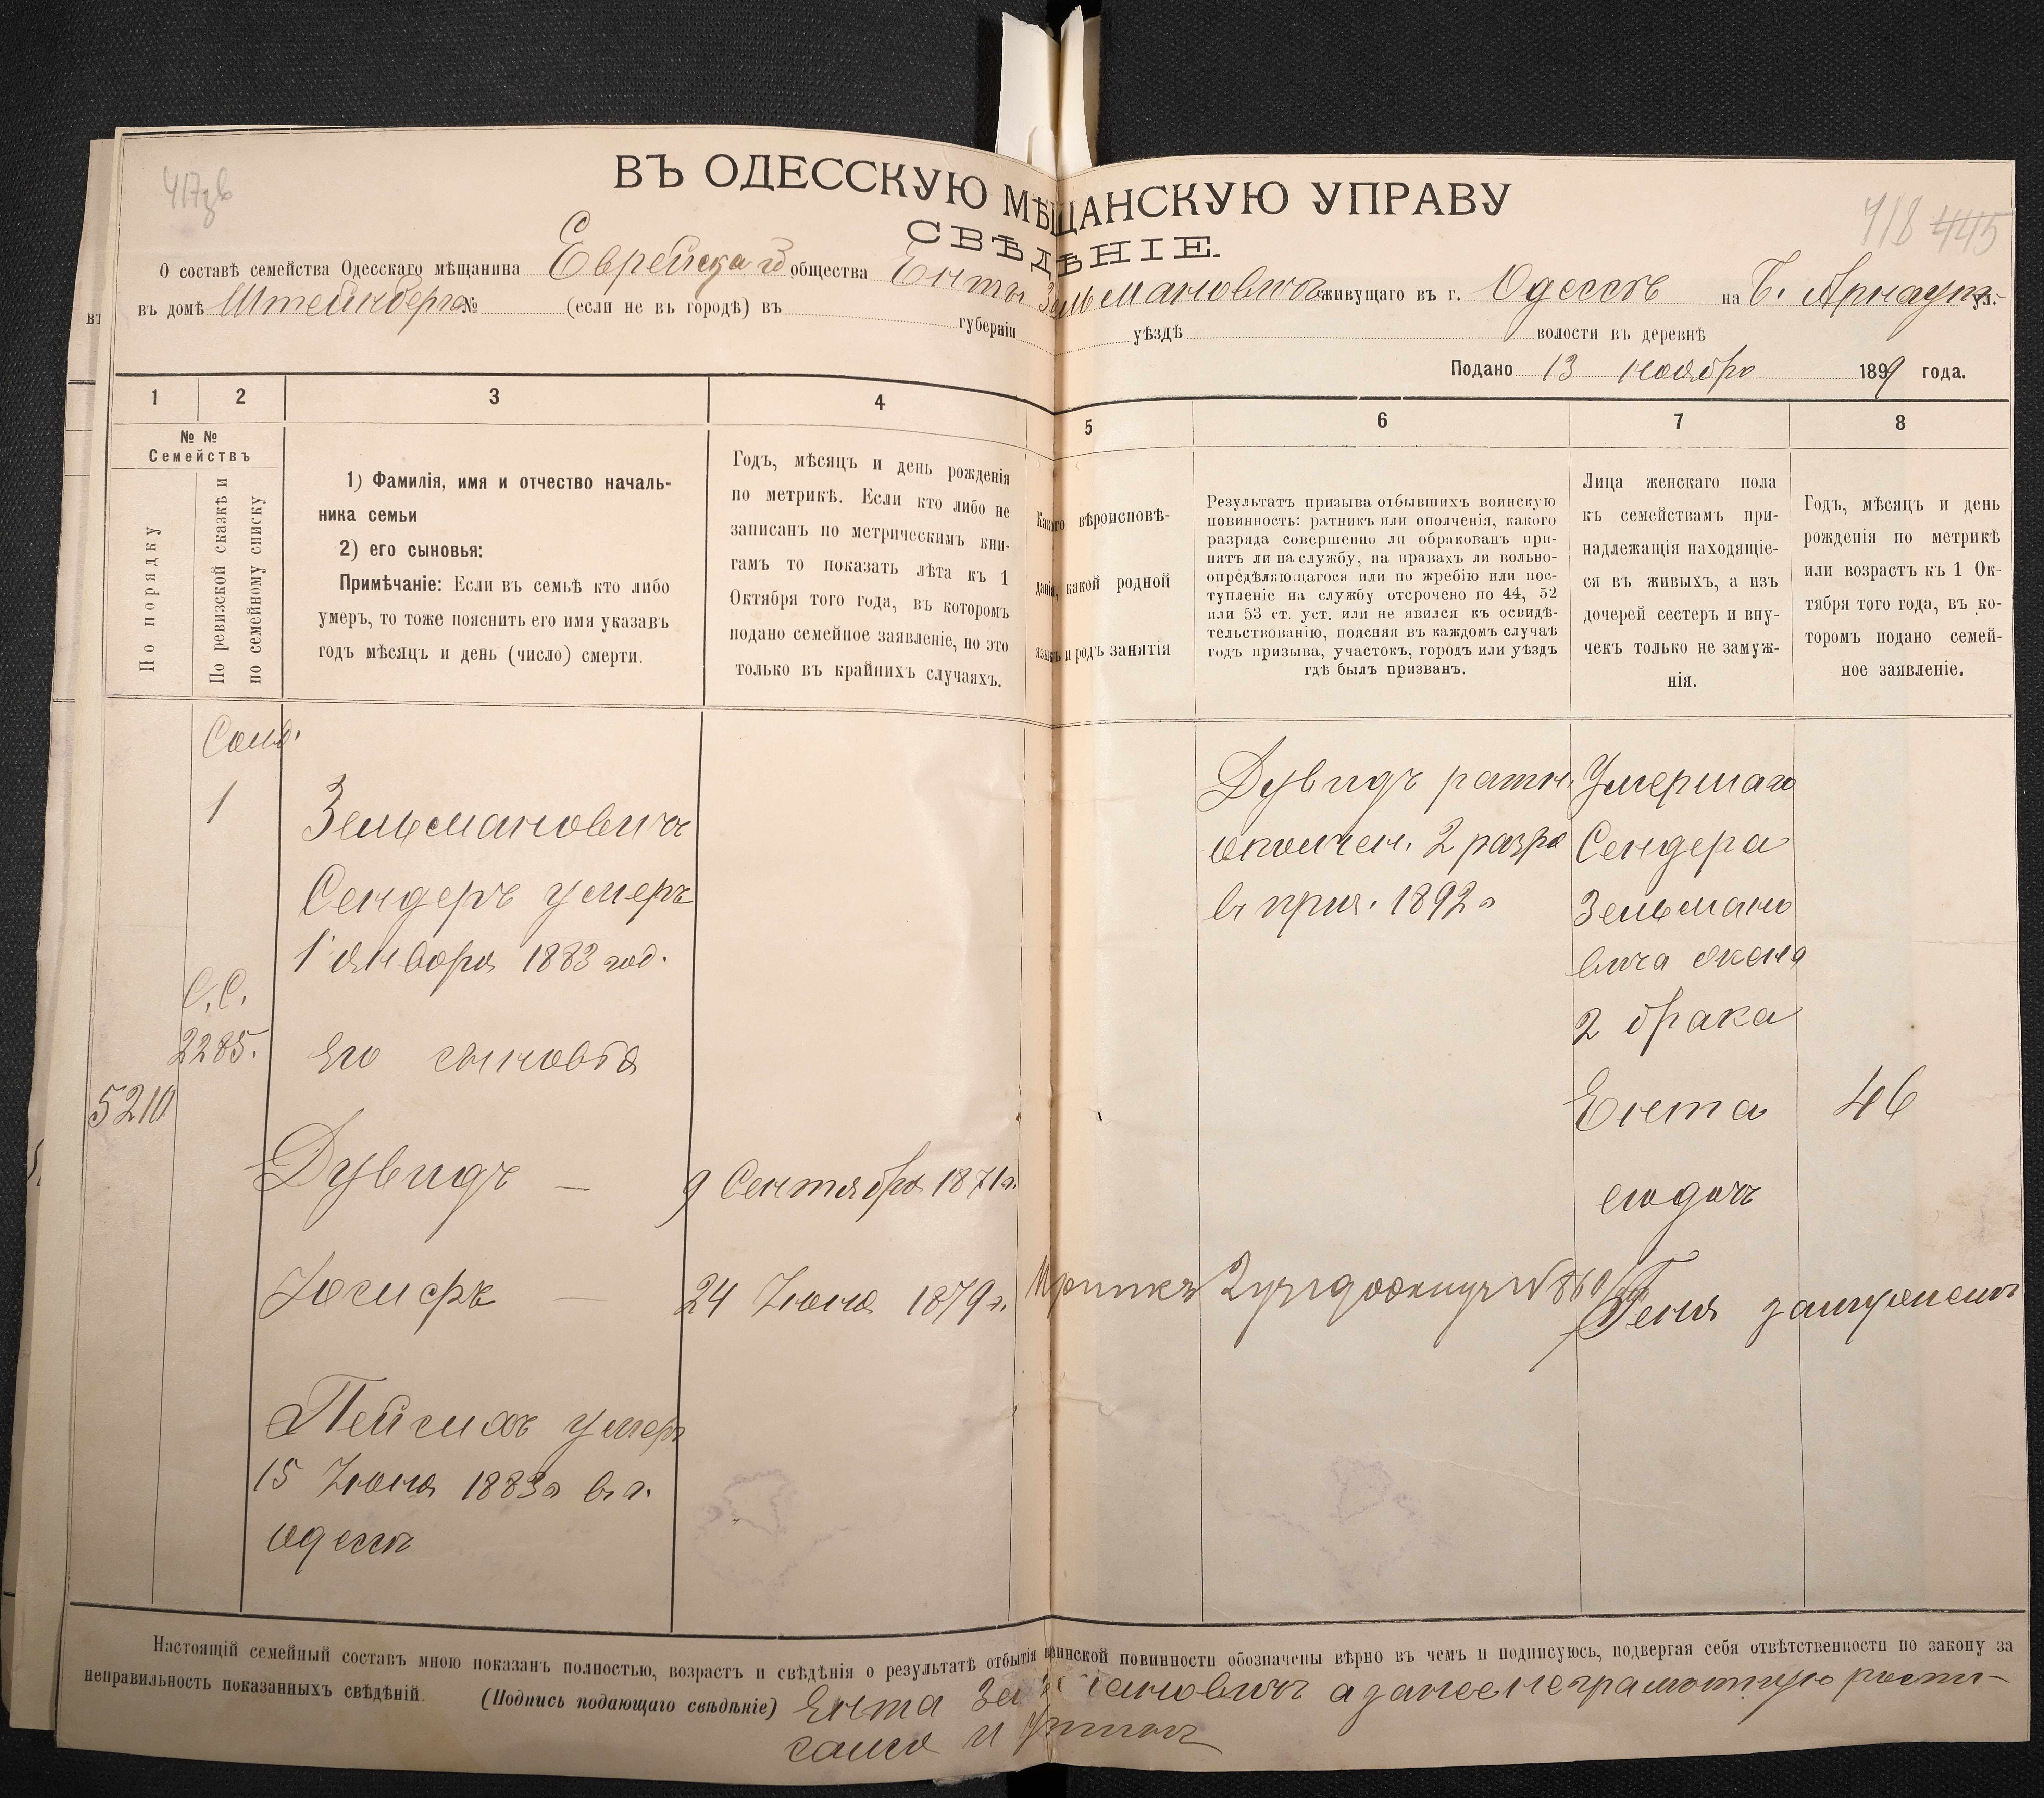 417зв
418 445
ВЪ ОДЕССКУЮ МѢЩАНСКУЮ УПРАВУ
СВѢДѢНІЕ.
О составѣ семейства Одесскаго мѣщанина Еврейскаго общества Енты Зельмановичъ живущаго въ г. Одессѣ на Б. Арнаут. ул.
въ домѣ Штейнберга № (если не въ городѣ) въ губерніи уѣздѣ волости въ деревнѣ
Подано 13 ноября 1899 года.
1 2 3 4 5 6 7 8
№ №
Семействъ
По порядку
По ревизской сказкѣ и
по семейному списку
1) Фамилія, имя и отчество началь-
ника семьи
2) его сыновья:
Примѣчаніе: Если въ семьѣ кто либо
умеръ, то тоже пояснить его имя указавъ
годъ мѣсяцъ и день (число) смерти.
Годъ, мѣсяцъ и день рожденія
по метрикѣ. Если кто либо не
записанъ по метрическимъ кни-
гамъ то показать лѣта къ 1
Октября того года, въ которомъ
подано семейное заявленіе, но это
только въ крайнихъ случаяхъ.
Какого вѣроисповѣ-
данія, какой родной
языкъ и родъ занятія
Результатъ призыва отбывшихъ воинскую
повинность: ратникъ или ополченія, какого
разряда совершенно ли обракованъ при-
нятъ ли на службу, на правахъ ли вольно-
опредѣляющагося или по жребію или пос-
тупленіе на службу отсрочено по 44, 52
или 53 ст. уст. или не явился къ освидѣ-
тельствованію, поясняя въ каждомъ случаѣ
годъ призыва, участокъ, городъ или уѣздъ
гдѣ былъ призванъ.
Лица женскаго пола
къ семействамъ при-
надлежащія находящіе-
ся въ живыхъ, а изъ
дочерей сестеръ и вну-
чекъ только не замуж-
нія.
Годъ, мѣсяцъ и день
рожденія по метрикѣ
или возрастъ къ 1 Ок-
тября того года, въ ко-
торомъ подано семей-
ное заявленіе.
1
Зельмановичъ
Сендеръ умеръ
1 января 1883 год.
С.С.
2285.
его сыновья
5210
Дувидъ —
9 Сентября 1871 г.
Іосифъ —
24 Іюня 1879 г.
Пейсахъ умеръ
15 Іюня 1883 г в г.
одессѣ
Дувидъ ратн.
ополчен. 2 разря
в приз. 1892 г
Умершаго
Сендера
Зельмано
вича жена
2 брака
Ента 46
его дочь
Геня замужемъ
Настоящій семейный составъ мною показанъ полностью, возрастъ и свѣдѣнія о результатѣ отбытія воинской повинности обозначены вѣрно въ чемъ и подписуюсь, подвергая себя отвѣтственности по закону за
неправильность показанныхъ свѣдѣній. (Подпись подающаго свѣдѣніе) Ента Зельмановичъ а за нее неграмотную роспи-